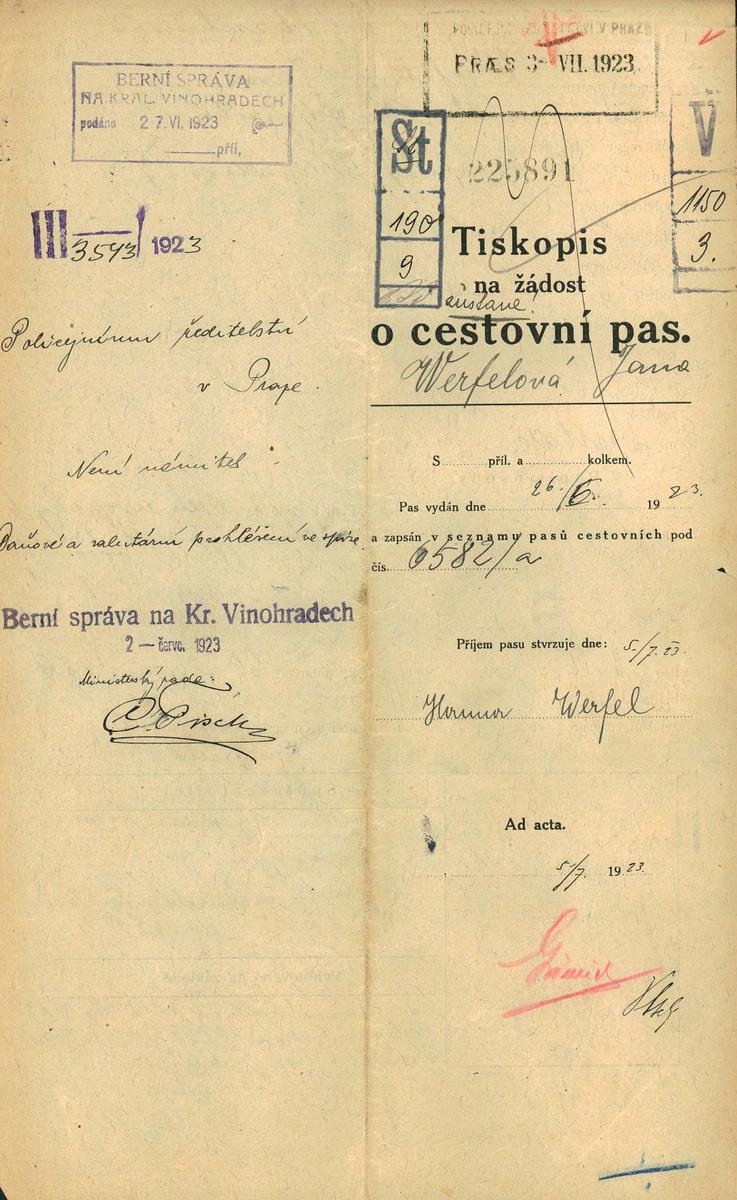 BERNÍ SPRÁVA
NA KRÁL. VINOHRADECH
podáno 27. VI. 1923
příl,
III 3543/ 1923
Policejnímu ředitelství
v Praze.
Není námitek.
Daňové a valutární prohlášení ve spise.
Berní správa na Kr. Vinohradech
2 — červc. 1923
Ministerský rada:
POLICEJNÍ ŘEDITELSTVÍ V PRAZE
PRÆS 3- VII. 1923
225891
St
190
9
V
1150
3.
Tiskopis
na žádost
o cestovní pas.
Werfelová Jana
S příl. a kolkem.
Pas vydán dne 26./6. 1923.
a zapsán v seznamu pasů cestovních pod
čís. 6582/a
Příjem pasu stvrzuje dne: 5./7. 23.
Hanna Werfel
Ad acta.
5/7. 1923.